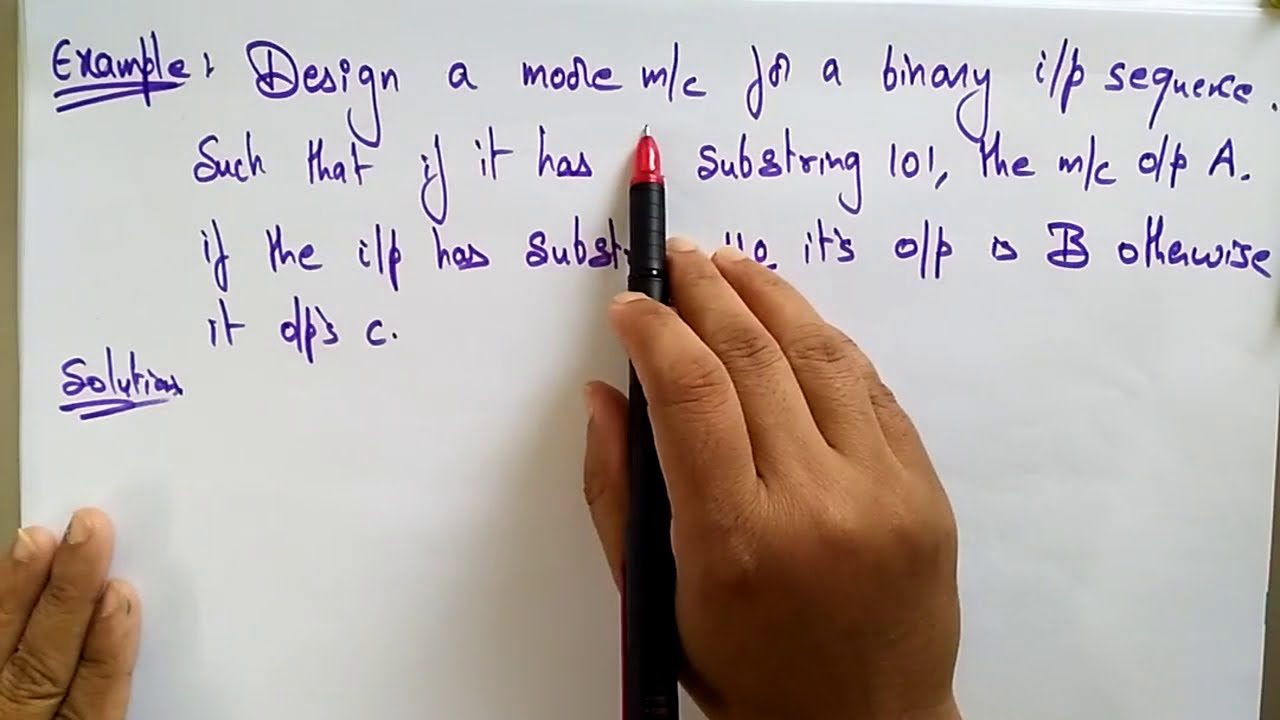 Example: Design a moore m/c for a binary i/p sequence.
Such that if it has substring 101, the m/c o/p A.
if the i/p has it's o/p is B otherwise
it o/p's c.
Solution